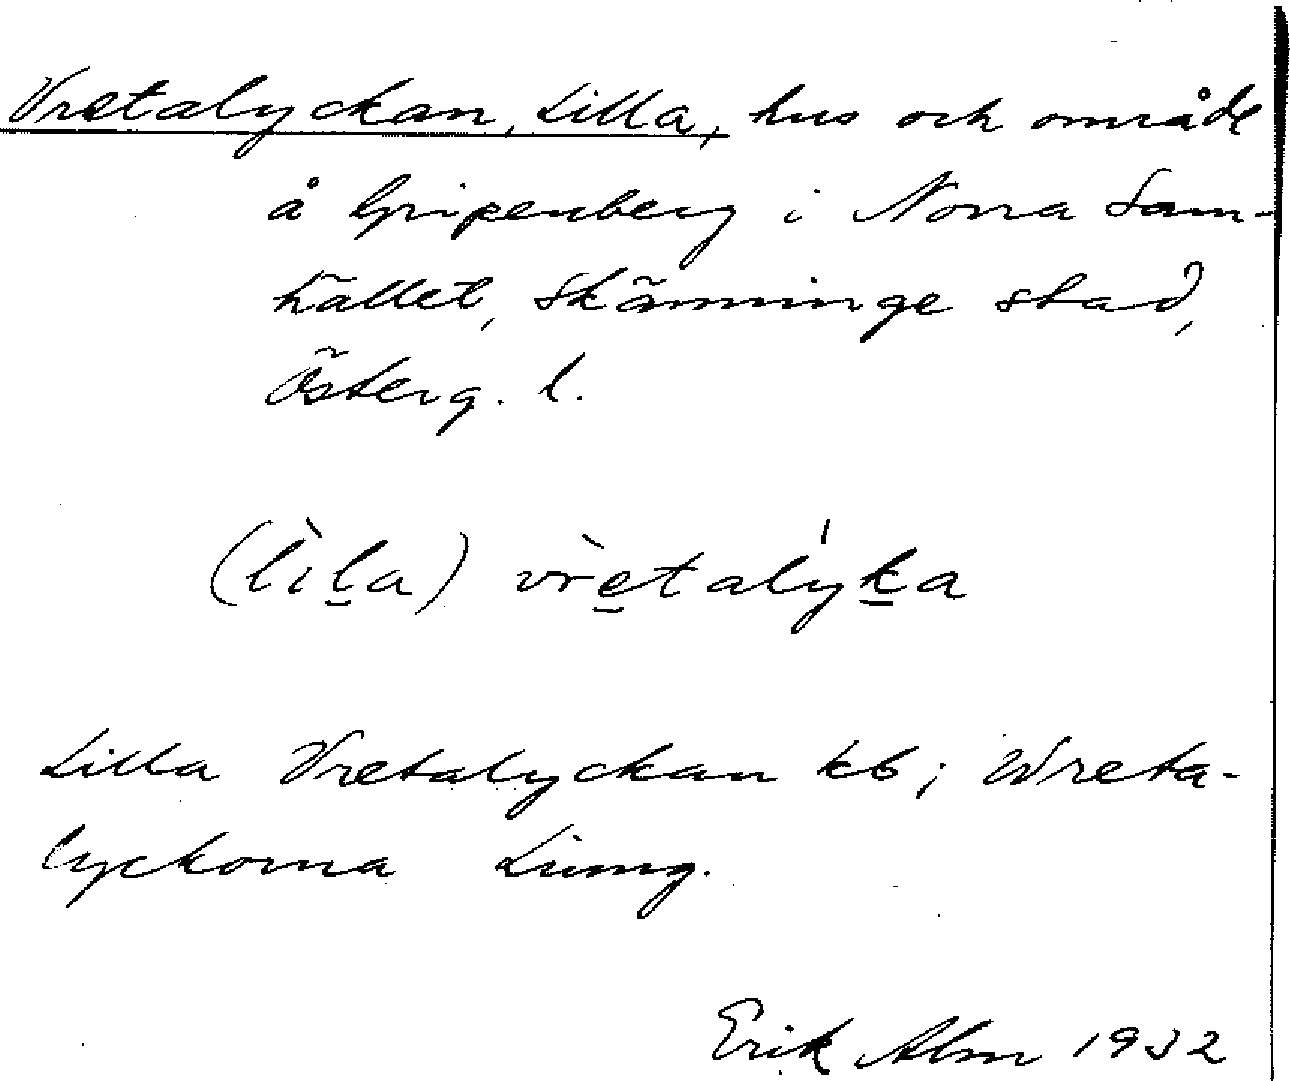 Vretalyckan, Lilla, hus och område
å Gripenberg i Norra Sam-
hället, Skänninge stad,
Österg. l.
(lìl̲a) vrè̲talýk̲a
Lilla Vretalyckan kb; Wreta-
lyckorna Ljung.
Erik Alm 1932